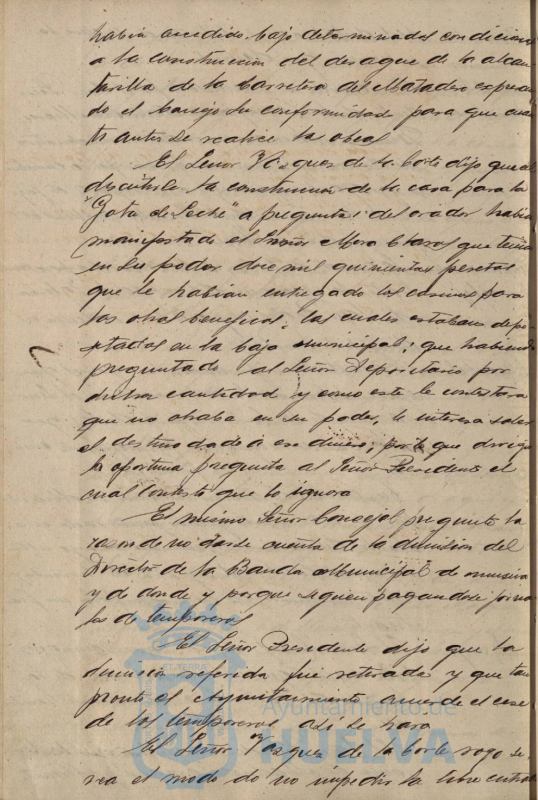 habia accedido bajo determinadas condiciones
a la construccion del desague de la alcan
tarilla de la Carretera del Matadero expresan
do el Consejo su conformidad para que cuan
to antes se realice la obra
El Señor Vazquez de la Corte dijo que al
discutirse la construccion de la casa para la
"Gota de Leche" a preguntas del orador habia
manifestado el Señor Mora Claros que tenia
en su poder doce mil quinientas pesetas
que le habian entregado los casinos para
las obras beneficas, las cuales estaban depo-
sitadas en la Caja municipal; que habiendo
preguntado al Señor Depositario por
dicha cantidad y como este le contestara
que no obraba en su poder, le interesa saber
el destino dado á ese dinero; por lo que dirige
la oportuna pregunta al Señor Presidente el
cual contestó que lo ignora
El mismo Señor Concejal preguntó la
razon de no darse cuenta de la dimision del
Director de la Banda Municipal de musica
y de donde y porque siguen pagandose jorna
les de temporeros
El Señor Presidente dijo que la
dimision referida fue retirada y que tan
pronto el Ayuntamiento acuerde el cese
de los temporeros asi se hará
El Señor Vazquez de la Corte rogo se
vea el modo de no impedir la libre entrada
ET TERRÆ
Ayuntamiento de
HUELVA